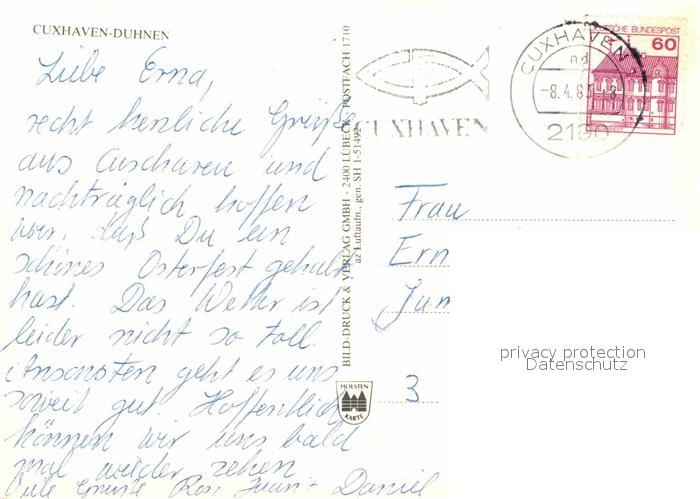 CUXHAVEN-DUHNEN
Liebe Erna,
recht herzliche Grüße
aus Cuxhaven und
nachträglich hoffen
wir, daß Du ein
schönes Osterfest gehabt
hast. Das Wetter ist
leider nicht so toll.
Ansonsten geht es uns
soweit gut. Hoffentlich
können wir uns bald
mal wieder sehen
Viele Grüße Daniel
BILD-DRUCK & VERLAG GMBH - 2400 LÜBECK - POSTFACH 1710
az Luftaufn., gen. SH 1-51492
HOLSTEN
KARTE
CUXHAVEN
CUXHAVEN 1
nd
2190
DEUTSCHE BUNDESPOST
60
Frau
Ern
Jun
3
privacy protection
Datenschutz